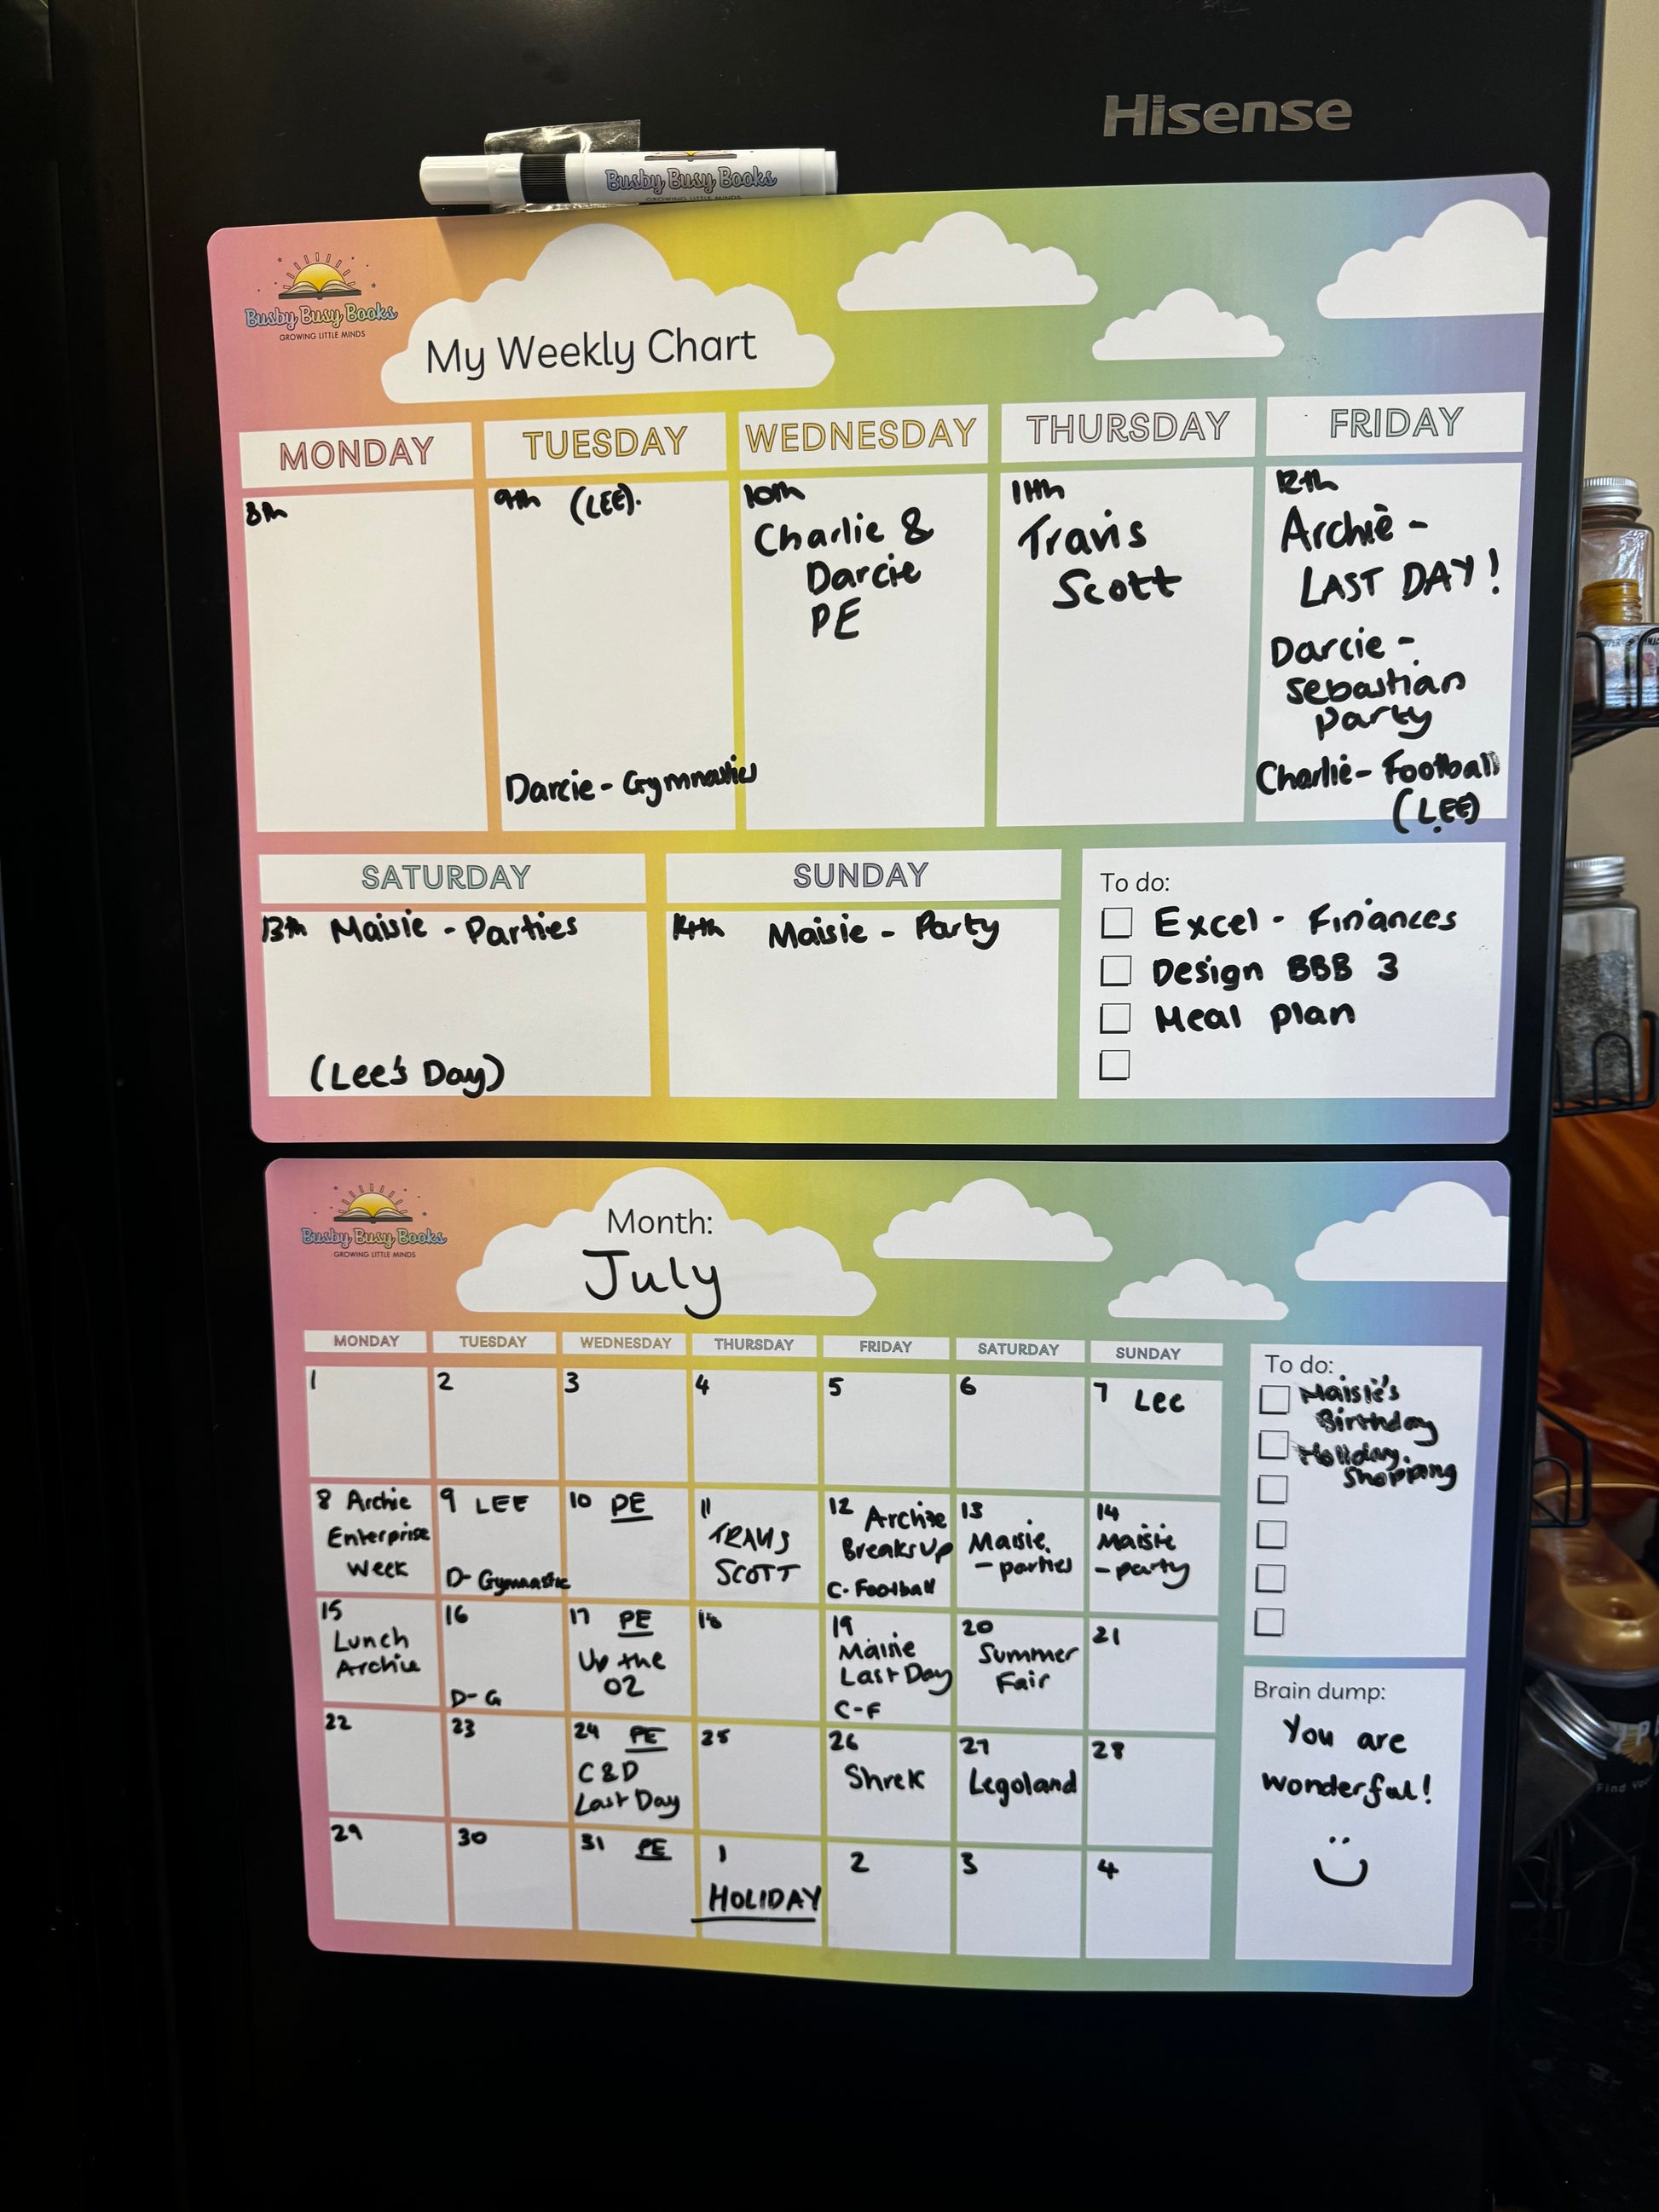 Hisense
Busby Busy Books
GROWING LITTLE MINDS
Busby Busy Books
GROWING LITTLE MINDS
My Weekly Chart
MONDAY
8th
TUESDAY
9th (LEE).
Darcie - Gymnastics
WEDNESDAY
10th
Charlie &
Darcie
PE
THURSDAY
11th
Travis
Scott
FRIDAY
12th
Archie -
LAST DAY!
Darcie -
Sebastian
Party
Charlie - Football
(LEE)
SATURDAY
13th Maisie - Parties
(Lee's Day)
SUNDAY
14th Maisie - Party
To do:
Excel - Finances
Design BBB 3
Meal plan
Busby Busy Books
GROWING LITTLE MINDS
Month:
July
MONDAY TUESDAY WEDNESDAY THURSDAY FRIDAY SATURDAY SUNDAY
1
2
3
4
5
6
7 Lee
8 Archie
Enterprise
Week
9 LEE
D- Gymnastic
10 PE
11
TRAVIS
SCOTT
12 Archie
Breaks Up
C- Football
13
Maisie
- parties
14
Maisie
- party
15
Lunch
Archie
16
D-G
17 PE
Up the
O2
18
19
Maisie
Last Day
C-F
20
Summer
Fair
21
22
23
24 PE
C&D
Last Day
25
26
Shrek
27
Legoland
28
29
30
31 PE
1
HOLIDAY
2
3
4
To do:
Maisie's
Birthday
Holiday
Shopping
Brain dump:
You are
wonderful!